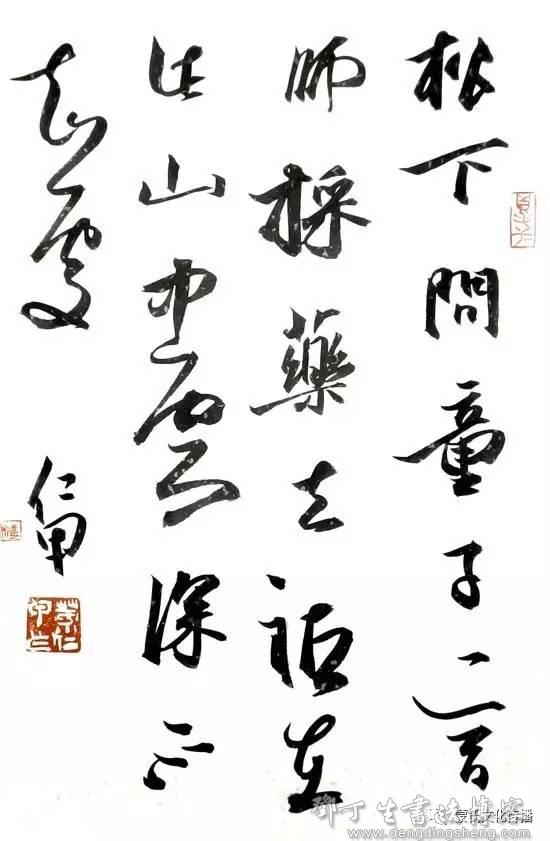 松下問童子言
師採藥去祇在
此山中雲深不
知處
仁甲
鄧丁生書法博客
www.dengdingsheng.com
文化传播